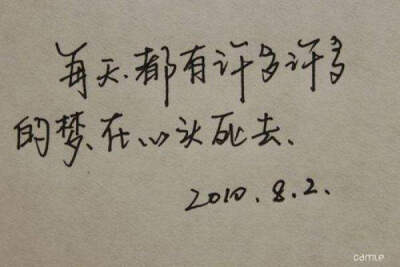 每天.都有许多许多
的梦、在心头死去、
2010.8.2.
camile